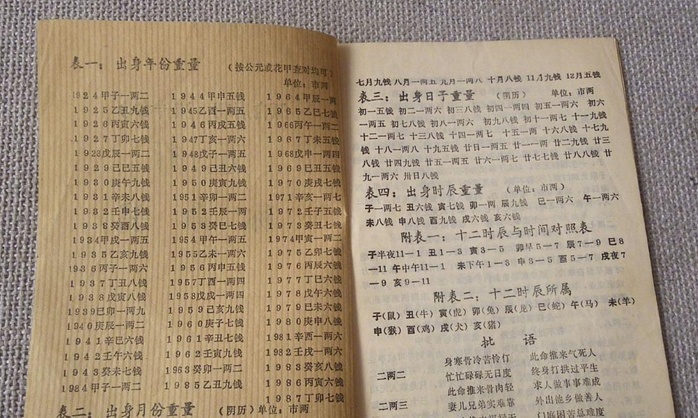 表一：出身年份重量 （按公元或花甲查对均可）
单位：市两
1924甲子一两二 1944甲申五钱 1964甲辰一两
1925乙丑九钱 1945乙酉一两五 1965乙巳七钱
1926丙寅六钱 1946丙戌五钱 1966丙午一两二
1927丁卯七钱 1947丁亥一两六 1967丁未五钱
1928戊辰一两二 1948戊子一两五 1968戊申一两四
1929己巳五钱 1949己丑六钱 1969己酉五钱
1930庚午九钱 1950庚寅九钱 1970庚戌七钱
1931辛未八钱 1951辛卯一两二 1971辛亥一两七
1932壬申七钱 1952壬辰一两 1972壬子五钱
1933癸酉八钱 1953癸巳七钱 1973癸丑七钱
1934甲戌一两五 1954甲午一两五 1974甲寅一两二
1935乙亥九钱 1955乙未一两六 1975乙卯七钱
1936丙子一两六 1956丙申五钱 1976丙辰六钱
1937丁丑八钱 1957丁酉一两四 1977丁巳六钱
1938戊寅八钱 1958戊戌一两四 1978戊午六钱
1939己卯一两九 1959己亥九钱 1979己未六钱
1940庚辰一两二 1960庚子七钱 1980庚申八钱
1941辛巳六钱 1961辛丑七钱 1981辛酉一两六
1942壬午六钱 1962壬寅九钱 1982壬戌一两
1943癸未七钱 1963癸卯一两二 1983癸亥六钱
1984甲子一两二 1985乙丑九钱 1986丙寅六钱
1987丁卯七钱
表二：出身月份重量 （阴历）单位：市两
七月九钱 八月一两五 九月一两八 十月八钱 11月九钱 12月五钱
表三：出身日子重量 （阴历） 单位：市两
初一五钱 初二一两六 初三八钱 初四一两四 初五一两六 初六
一两五 初七八钱 初八一两六 初九八钱 初十一两六 十一九钱
十二一两七 十三八钱 十四一两七 十五一两 十六八钱 十七九
钱 十八一两八 十九五钱 廿日一两五 廿一一两 廿二九钱 廿三
八钱 廿四九钱 廿五一两五 廿六一两八 廿七七钱 廿八八钱 廿
九一两六 卅日八钱
表四：出身时辰重量 （单位：市两）
子一两七 丑六钱 寅七钱 卯一两 辰九钱 巳一两六 午一两六
未八钱 申八钱 酉九钱 戌六钱 亥六钱
附表一：十二时辰与时间对照表
子半夜11－1 丑1－3 寅3－5 卯早5－7 辰7－9 巳8
－11 午中午11－1 未下午1－3 申3－5 酉5－7 戌夜7
－9 亥9－11
附表二：十二时辰所属
子（鼠） 丑（牛） 寅（虎） 卯（兔） 辰（龙） 巳（蛇） 午（马） 未（羊）
申（猴） 酉（鸡） 戌（犬） 亥（猪）
批 语
身寒骨冷苦怜仃 此命推来气死人
二两二 忙忙碌碌无日度 终身打拱过平生
此命推来骨肉轻 求人做事事难成
二两三 妻儿兄弟实难靠 外出他乡做善人